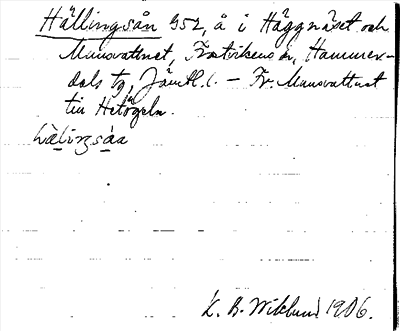 Hällingsån 952, å i Häggnäset och
Mansvattnet, Frostvikens sn, Hammer-
dals tg, Jämtl. l. – Fr. Mansvattnet
till Hetögeln.
K. B. Wiklund 1906.